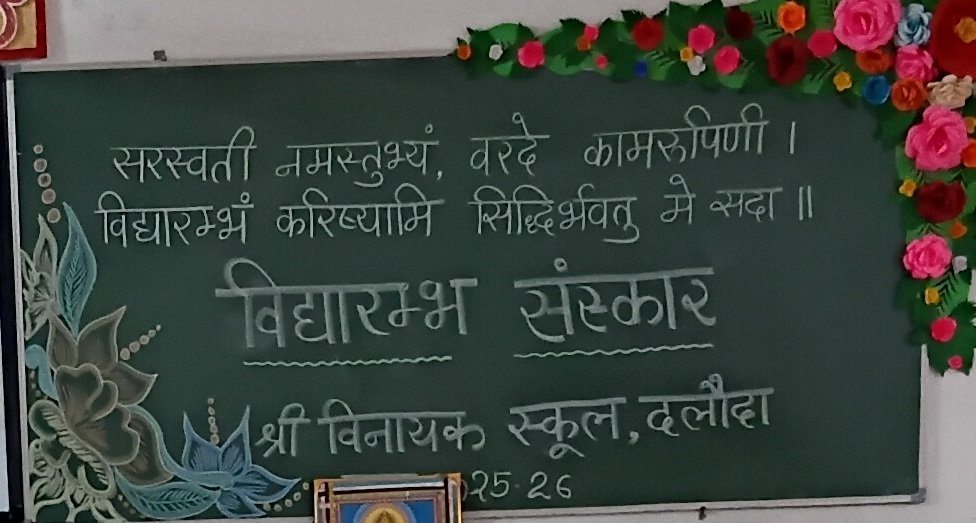 सरस्वती नमस्तुभ्यं, वरदे कामरूपिणी ।
विद्यारम्भं करिष्यामि सिद्धिर्भवतु मे सदा ॥
विद्यारम्भ संस्कार
श्री विनायक स्कूल, दलौदा
25-26